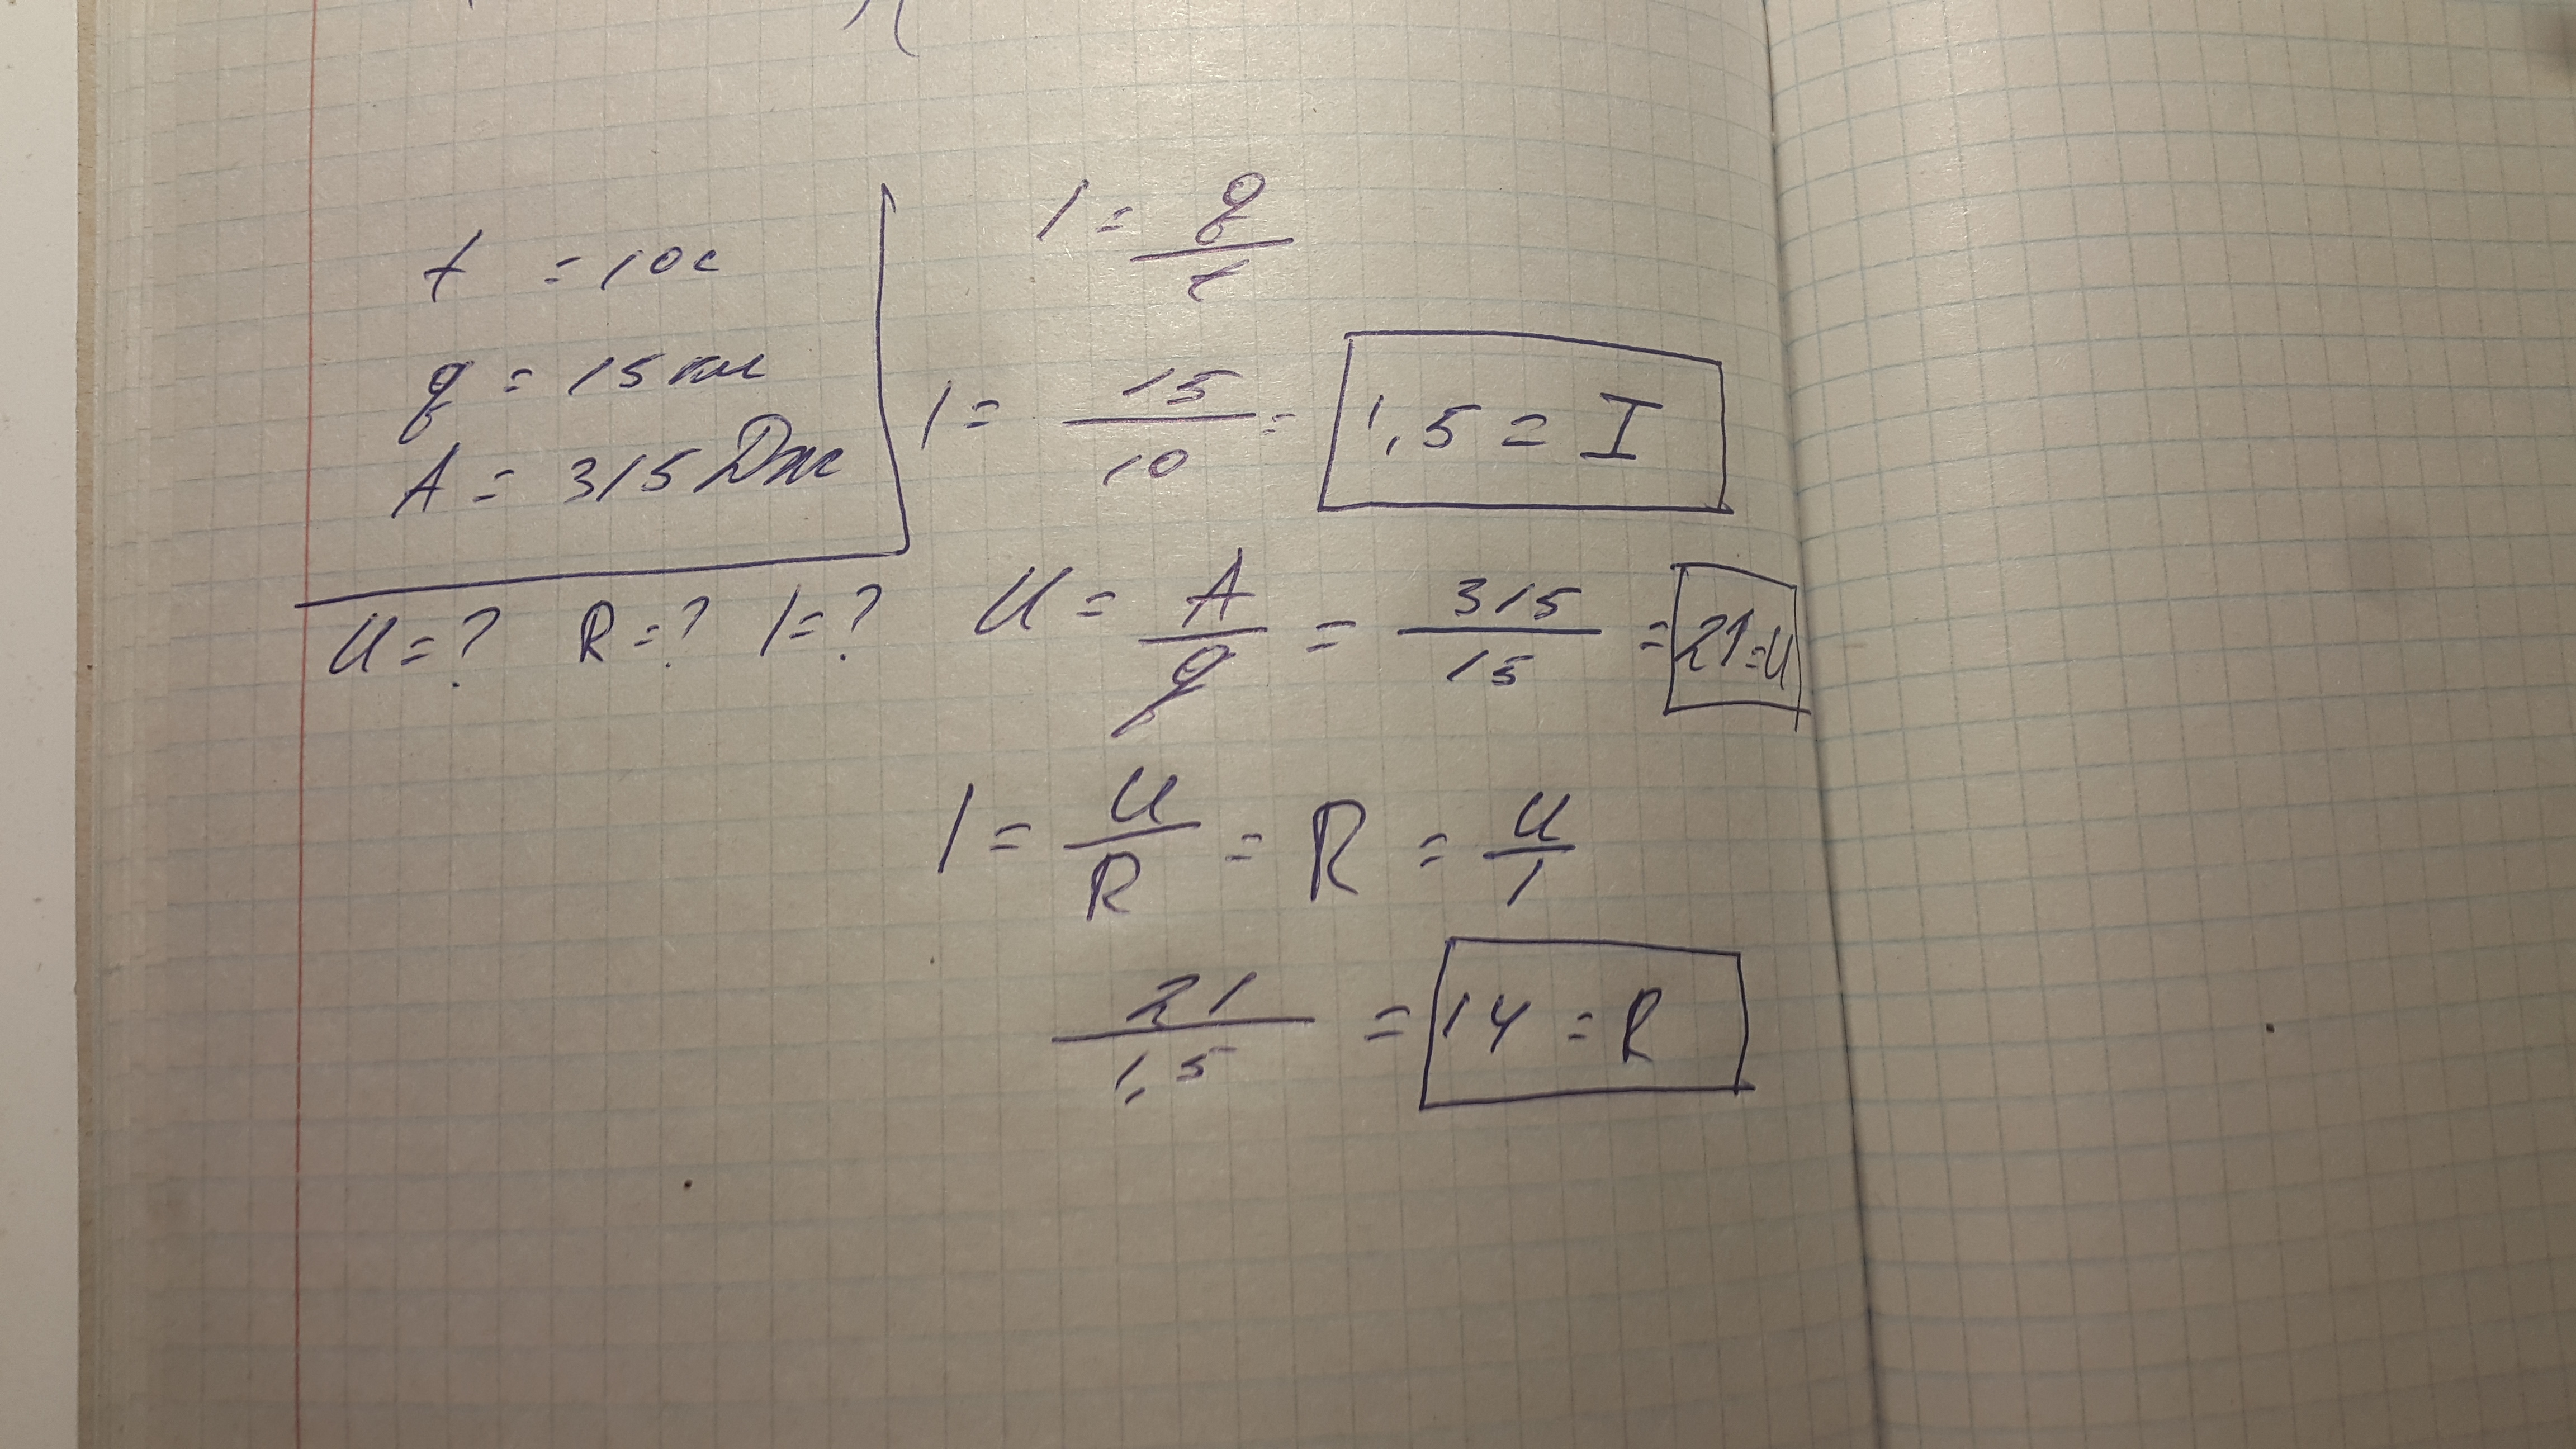 t = 10с
q = 15 кл
A = 315 Дж
U = ? R = ? I = ?
I = q/t
I = 15/10 = 1,5 = I
U = A/q = 315/15 = 21 = U
I = U/R = R = U/I
21/1,5 = 14 = R